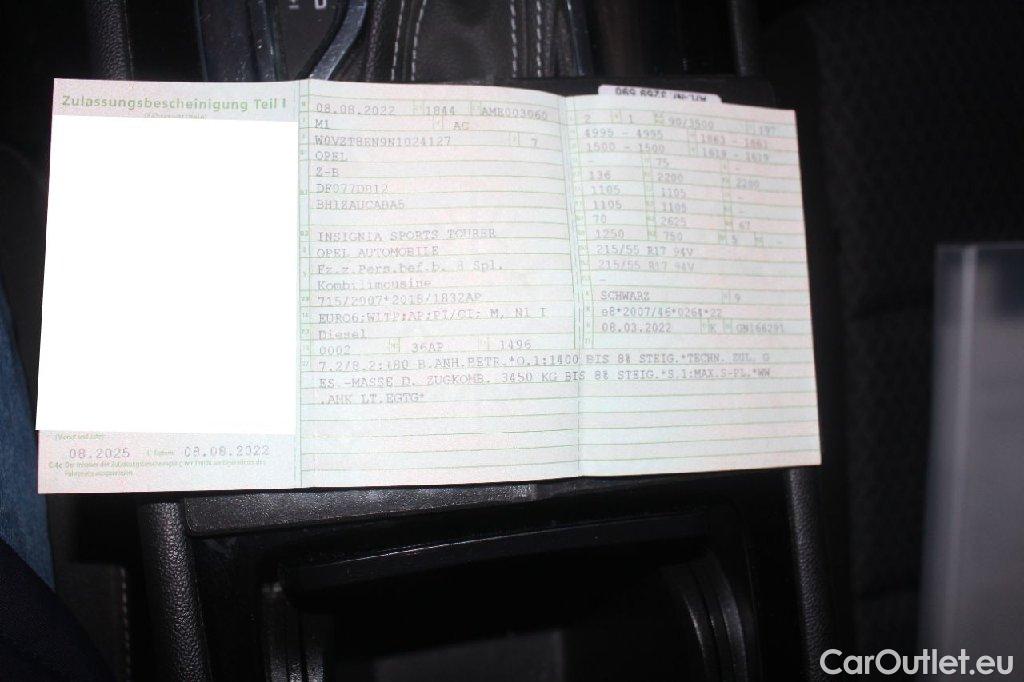 Zulassungsbescheinigung Teil I
08.2025 08.08.2022
08.08.2022 1844 AMR003060
M1 AC
W0VZT8EN9N1024127 7
OPEL
Z-B
BHIZAUCABA5
INSIGNIA SPORTS TOURER
OPEL AUTOMOBILE
Fz.z.Pers.bef.b. 8 Spl.
Kombilimousine
715/2007*2018/1832AP
EURO6;WLTP;AP;PI/CI; M, N1 I
Diesel
0002 36AP 1496
7.2/8.2:+80 B.ANH.BETR.*O.1:1400 BIS 8% STEIG.*TECHN. ZUL. G
ES.-MASSE D. ZUGKOMB. 3450 KG BIS 8% STEIG.*S.1:MAX.S-PL.*WW
.AHK LT.EGTG*
2 1 90/3500 197
4995 - 4995 1863 - 1863
1500 - 1500
- 75 -
136 2200 2200
1105 1105 -
1105 1105 -
70 2625 67
1250 750 5 -
215/55 R17 94V
215/55 R17 94V
-
SCHWARZ 9
e8*2007/46*0264*22
08.03.2022 K GN166291
CarOutlet.eu